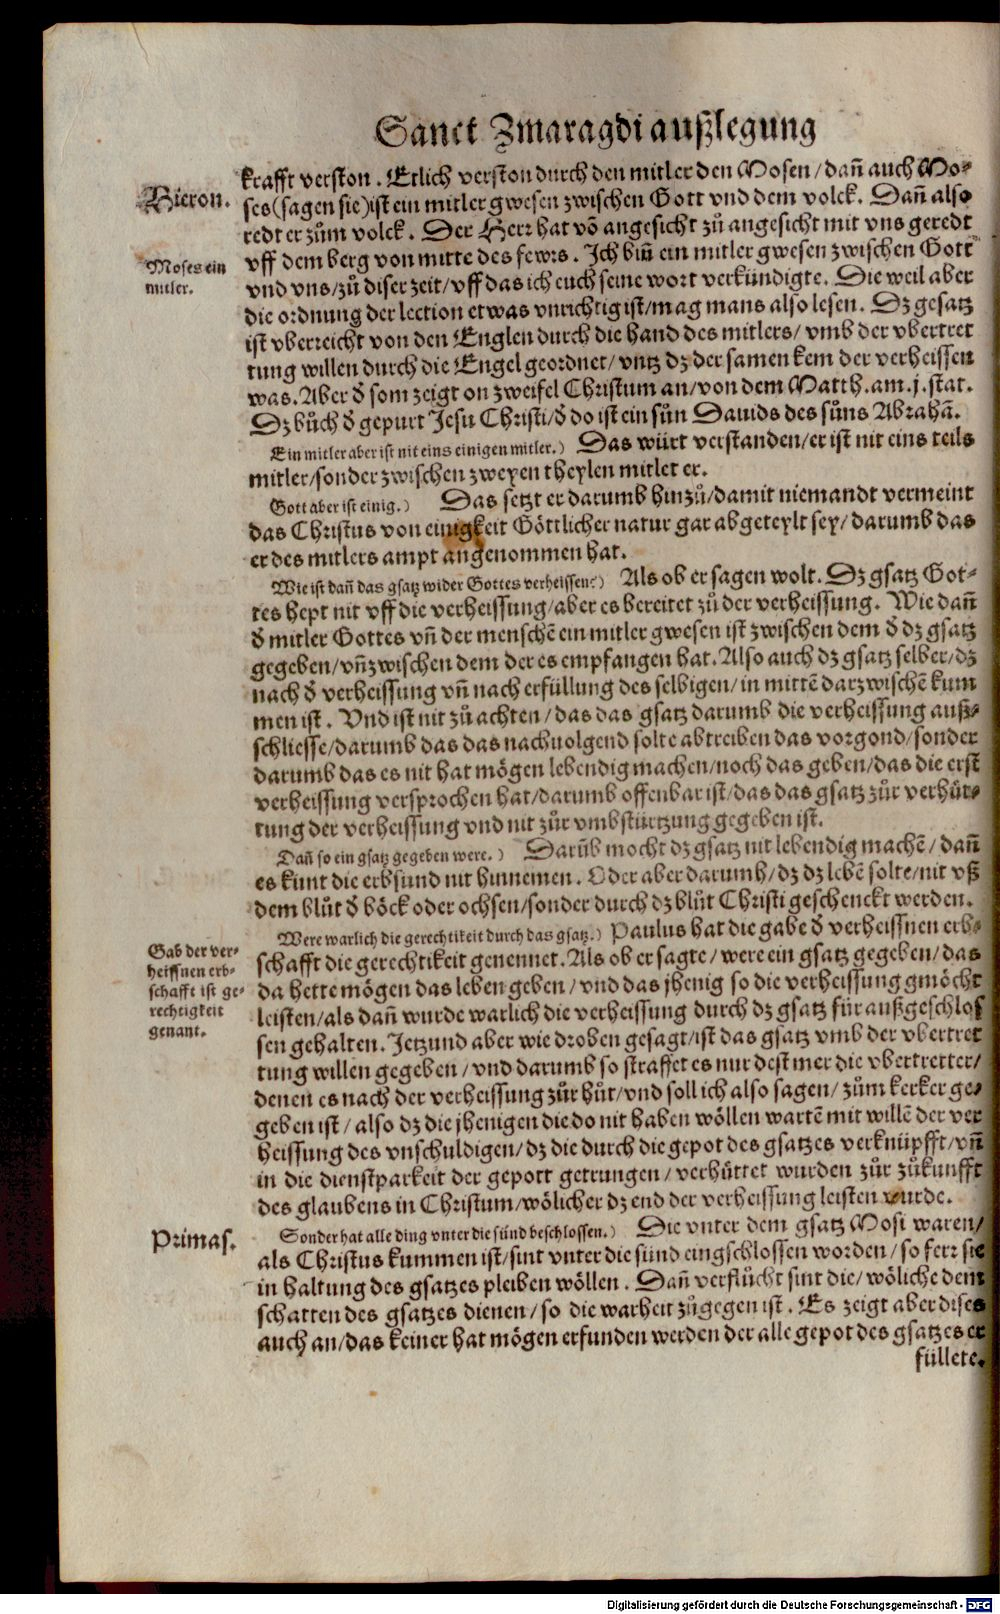 Sanct Zmaragdi außlegung
krafft verston. Etlich verston durch den mitler den Mosen/dañ auch Mo⸗
Hieron.
ses(sagen sie)ist ein mitler gwesen zwischen Gott vnd dem volck. Dañ also
redt er zům volck. Der Herr hat võ angesicht zů angesicht mit vns geredt
Moses ein
mitler.
vff dem berg von mitte des fewrs. Ich biñ ein mitler gwesen zwischen Gott
vnd vns/zů diser zeit/vff das ich euch seine wort verkündigte. Die weil aber
die ordnung der lection etwas vnrichtig ist/mag mans also lesen. Dz gesatz
ist vberreicht von den Englen durch die hand des mitlers/vmb der vbertret
tung willen durch die Engel geordnet/vntz dz der samen kem der verheissen
was. Aber đ som zeigt on zweifel Christum an/von dem Matth. am. j. stat.
Dz bůch đ gepurt Jesu Christi/đ do ist ein sůn Dauids des sůns Abrahã.
Ein mitler aber ist nit eins einigen mitler.) Das würt verstanden/er ist nit eins teils
mitler/sonder zwischen zweyen theylen mitlet er.
Gott aber ist einig.) Das setzt er darumb hinzů/damit niemandt vermeint
das Christus von einigkeit Göttlicher natur gar abgeteylt sey/darumb das
er des mitlers ampt angenommen hat.
Wie ist dañ das gsatz wider Gottes verheissen?) Als ob er sagen wolt. Dz gsatz Got⸗
tes hept nit vff die verheissung/aber es bereitet zů der verheissung. Wie dañ
đ mitler Gottes vñ der menschẽ ein mitler gwesen ist zwischen dem đ dz gsatz
gegeben/vñ zwischen dem der es empfangen hat. Also auch dz gsatz selber/dz
nach đ verheissung vñ nach erfüllung des selbigen/in mittẽ darzwischẽ kum
men ist. Vnd ist nit zů achten/das das gsatz darumb die verheissung auß⸗
schliesse/darumb das das nachuolgend solte abtreiben das vorgond/sonder
darumb das es nit hat mögen lebendig machen/noch das geben/das die erst
verheissung versprochen hat/darumb offenbar ist/das das gsatz zůr verhüt⸗
tung der verheissung vnd nit zůr vmbstürtzung gegeben ist.
Dañ so ein gsatz gegeben were.) Darũb mocht dz gsatz nit lebendig machẽ/dañ
es kunt die erbsünd nit hinnemen. Oder aber darumb/dz dz lebẽ solte/nit vß
dem blůt đ böck oder ochsen/sonder durch dz blůt Christi geschenckt werden.
Were warlich die gerechtikeit durch das gsatz.) Paulus hat die gabe đ verheissnen erb⸗
Gab der ver⸗
heissnen erb⸗
schafft ist ge⸗
rechtigkeit
genant.
schafft die gerechtikeit genennet. Als ob er sagte/were ein gsatz gegeben/das
da hette mögen das leben geben/vnd das jhenig so die verheissung gmöcht
leisten/als dañ wurde warlich die verheissung durch dz gsatz für außgeschlos
sen gehalten. Jetzund aber wie droben gesagt/ist das gsatz vmb der vbertret
tung willen gegeben/vnd darumb so straffet es nur dest mer die vbertretter/
denen es nach der verheissung zůr hůt/vnd soll ich also sagen/zům kerker ge⸗
geben ist/also dz die jhenigen die do nit haben wöllen wartẽ mit willẽ der ver
heissung des vnschuldigen/dz die durch die gepot des gsatzes verknüpfft/vñ
in die dienstparkeit der gepott getrungen/verhüttet wurden zůr zůkunfft
des glaubens in Christum/wölicher dz end der verheissung leisten wurde.
Primas.
Sonder hat alle ding vnter die sünd beschlossen.) Die vnter dem gsatz Mosi waren/
als Christus kummen ist/sint vnter die sünd eingschlossen worden/so ferr sie
in haltung des gsatzes pleiben wöllen. Dañ verflůcht sint die/wöliche dem
schatten des gsatzes dienen/so die warheit zůgegen ist. Es zeigt aber dises
auch an/das keiner hat mögen erfunden werden der alle gepot des gsatzes er
füllete.
Digitalisierung gefördert durch die Deutsche Forschungsgemeinschaft - DFG